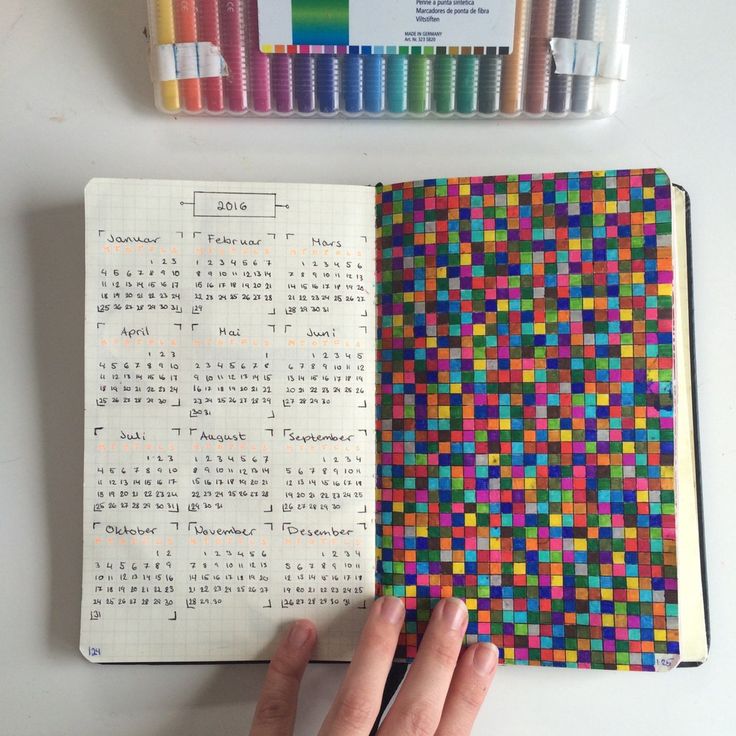 Penne a punta sintetica
Marcadores de punta de fibra
Viltstiften
MADE IN GERMANY
Art. Nr. 323 S820
2016
Januar
M T O T F L S
1 2 3
4 5 6 7 8 9 10
11 12 13 14 15 16 17
18 19 20 21 22 23 24
25 26 27 28 29 30 31
Februar
M T O T F L S
1 2 3 4 5 6 7
8 9 10 11 12 13 14
15 16 17 18 19 20 21
22 23 24 25 26 27 28
29
Mars
M T O T F L S
1 2 3 4 5 6
7 8 9 10 11 12 13
14 15 16 17 18 19 20
21 22 23 24 25 26 27
28 29 30 31
April
M T O T F L S
1 2 3
4 5 6 7 8 9 10
11 12 13 14 15 16 17
18 19 20 21 22 23 24
25 26 27 28 29 30
Mai
M T O T F L S
1
2 3 4 5 6 7 8
9 10 11 12 13 14 15
16 17 18 19 20 21 22
23 24 25 26 27 28 29
30 31
Juni
M T O T F L S
1 2 3 4 5
6 7 8 9 10 11 12
13 14 15 16 17 18 19
20 21 22 23 24 25 26
27 28 29 30
Juli
M T O T F L S
1 2 3
4 5 6 7 8 9 10
11 12 13 14 15 16 17
18 19 20 21 22 23 24
25 26 27 28 29 30 31
August
M T O T F L S
1 2 3 4 5 6 7
8 9 10 11 12 13 14
15 16 17 18 19 20 21
22 23 24 25 26 27 28
29 30 31
September
M T O T F L S
1 2 3 4
5 6 7 8 9 10 11
12 13 14 15 16 17 18
19 20 21 22 23 24 25
26 27 28 29 30
Oktober
M T O T F L S
1 2
3 4 5 6 7 8 9
10 11 12 13 14 15 16
17 18 19 20 21 22 23
24 25 26 27 28 29 30
31
November
M T O T F L S
1 2 3 4 5 6
7 8 9 10 11 12 13
14 15 16 17 18 19 20
21 22 23 24 25 26 27
28 29 30
Desember
M T O T F L S
1 2 3 4
5 6 7 8 9 10 11
12 13 14 15 16 17 18
19 20 21 22 23 24 25
26 27 28 29 30 31
124
125